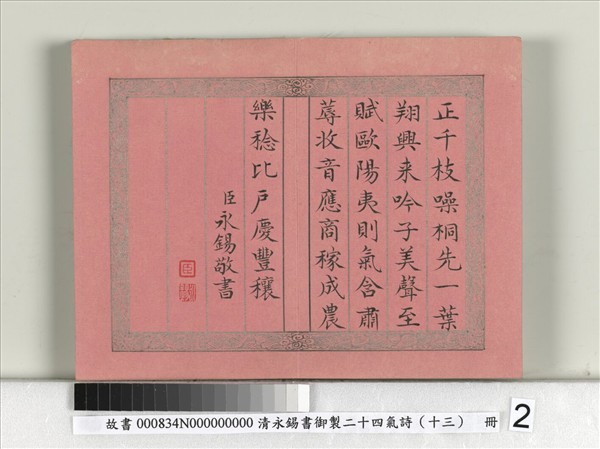 正千枝噪桐先一葉
翔興来吟子美聲至
賦歐陽夷則氣含肅
蓐收音應商稼成農
樂稔比戶慶豐穰
臣永錫敬書
故書 000834N000000000 清永錫書御製二十四氣詩（十三） 冊
2